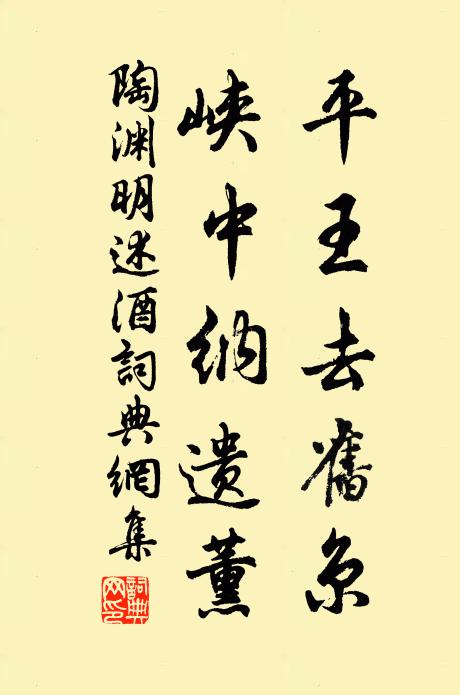 平王去舊京
峽中納遺薰
陶淵明述酒詞典網集
詞典
网印